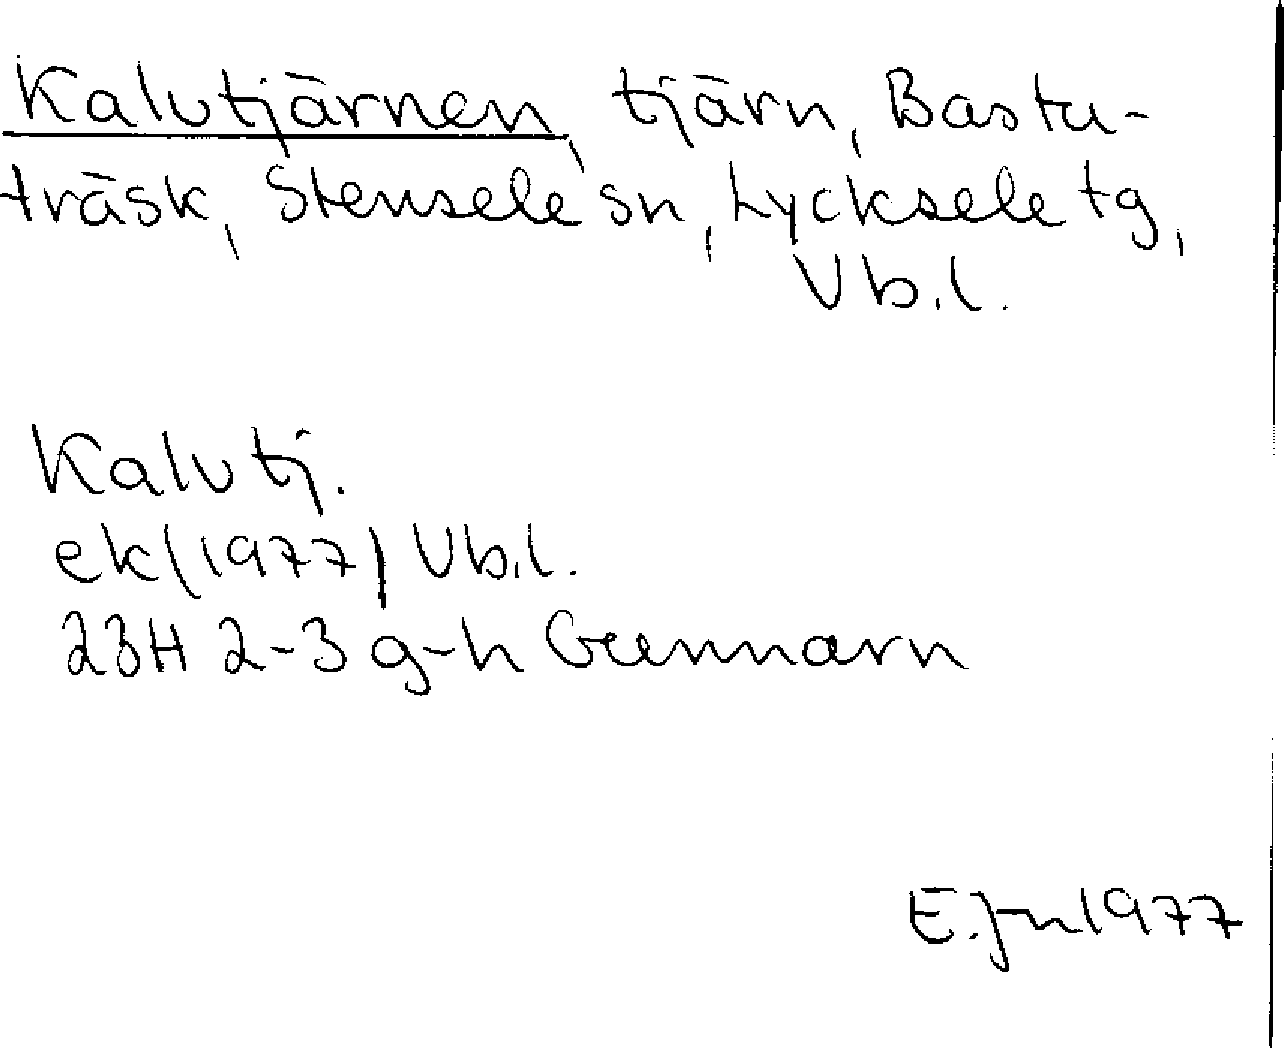 Kalvtjärnen, tjärn, Bastu-
träsk, Stensele sn, Lycksele tg,
Vb.l.
Kalvtj.
ek (1977) Vb.l.
23H 2-3 g-h Gunnarn
E. Jn 1977